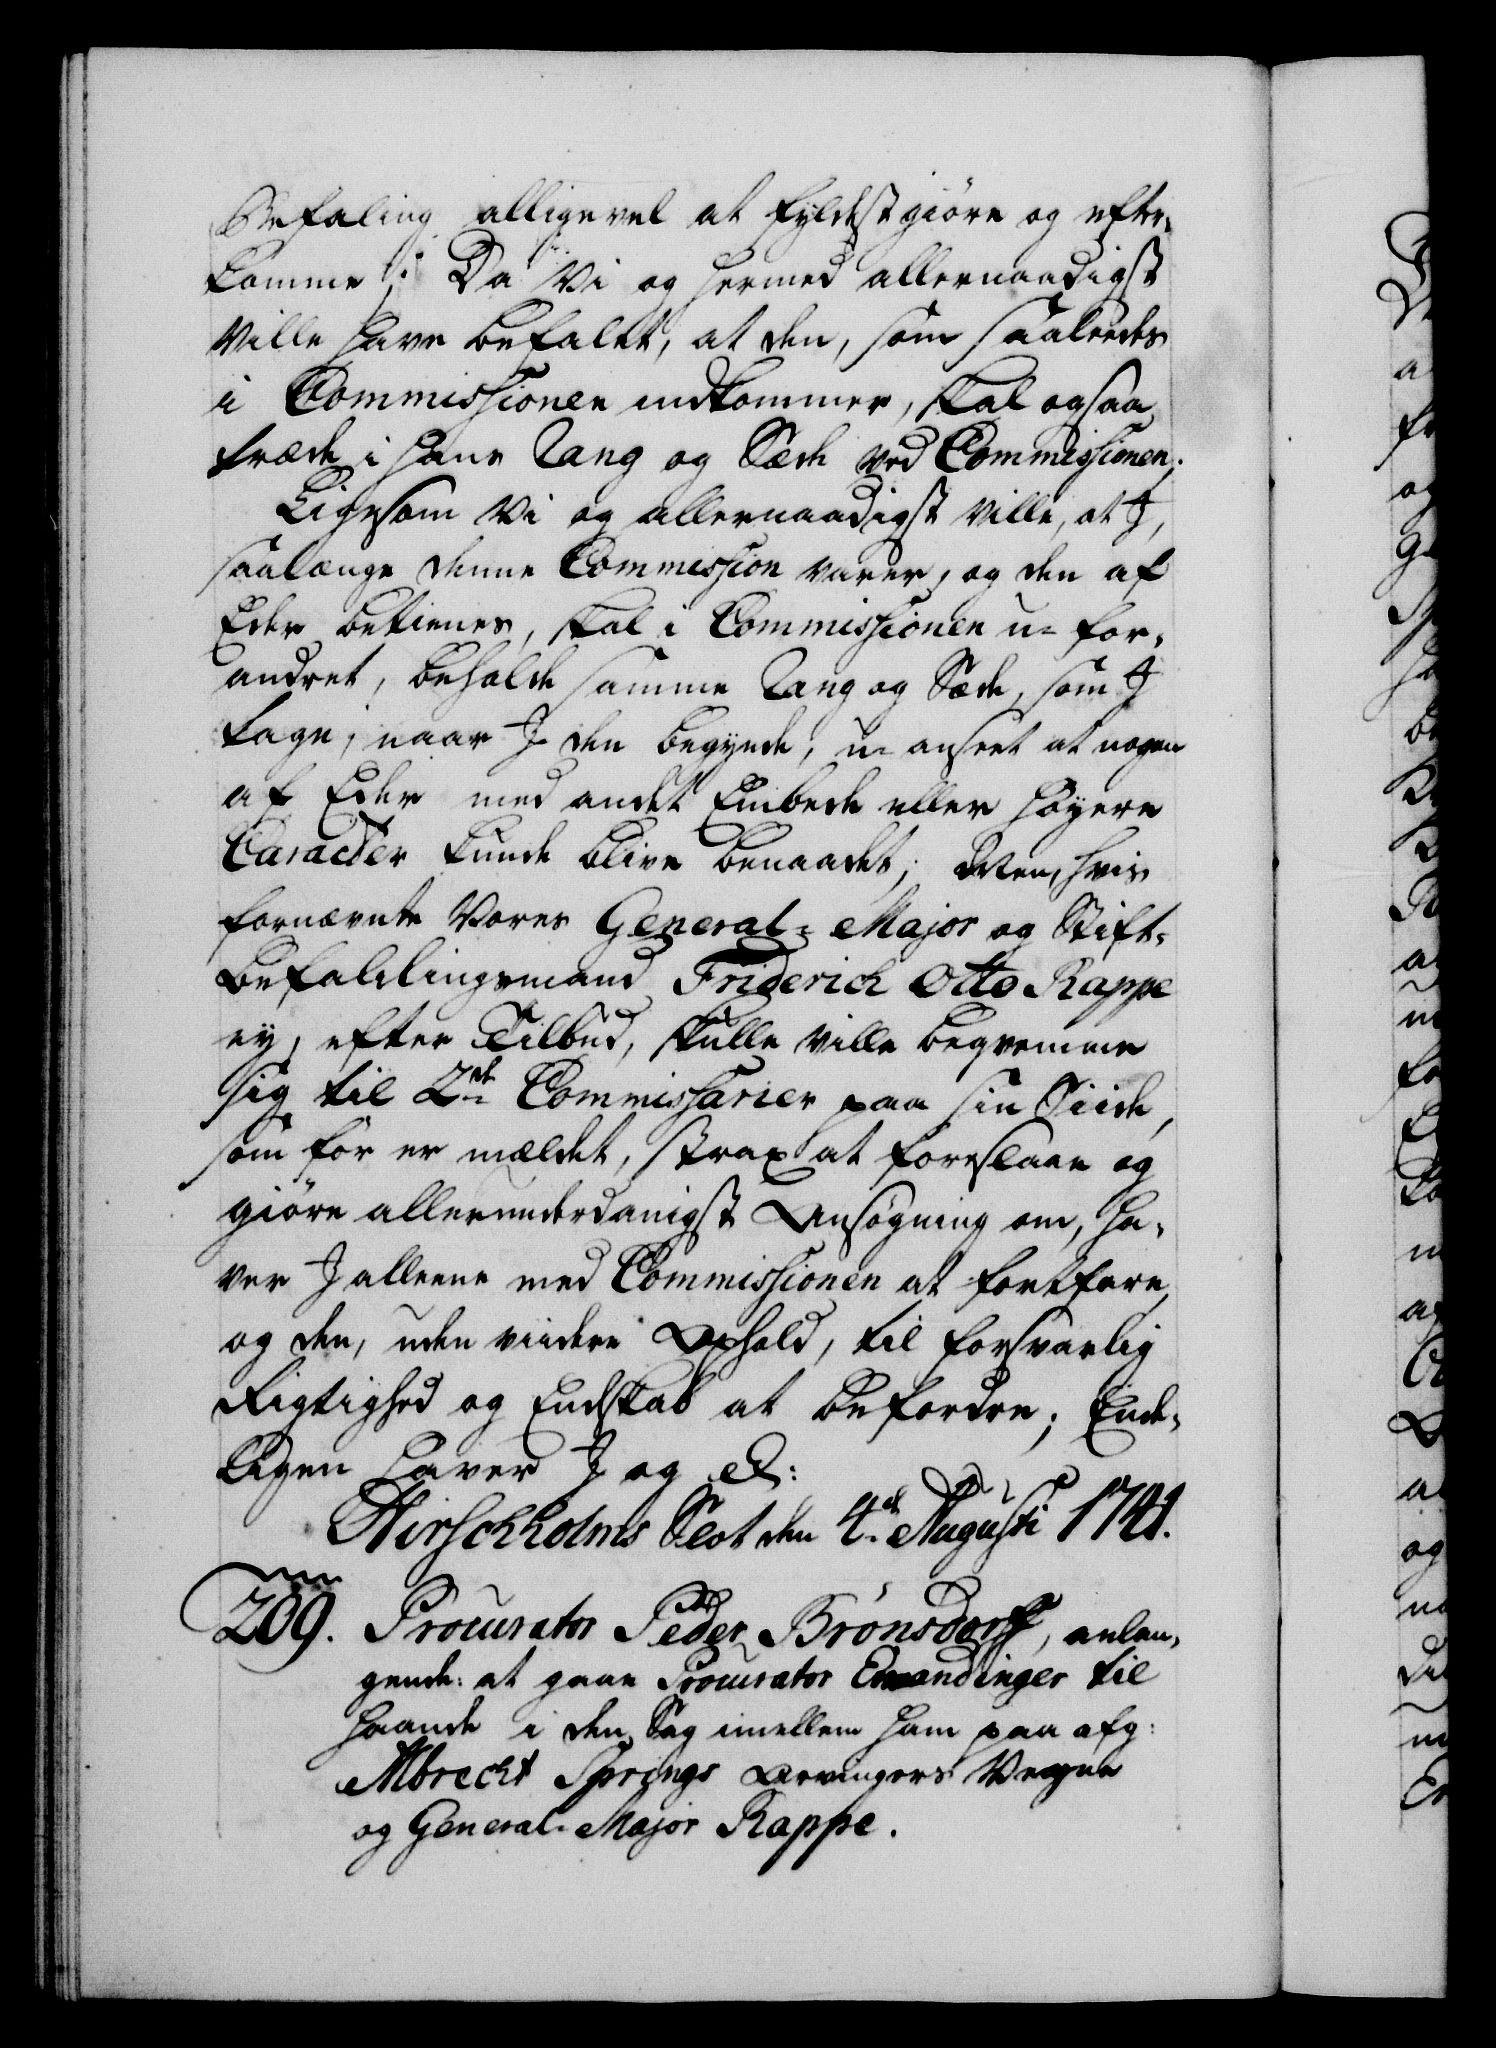 Befaling alligevel at fyldestgiöre og efter-
komme; Da Vi og hermed allernaadigst
ville have befalet, at den, som saaleedes
i Commissionen indkommer, skal ogsaa
træde i hans Rang og Sæde ved Commissionen.
Ligesom Vi og allernaadigst ville, at J,
saalænge denne Commission varer, og den af
Eder betienes, skal i Commissionen u-for-
andret, beholde samme Rang og Sæde, som J
tage, naar J den begynde, u-anseet at nogen
af Eder med andet Embede eller höyere
Caracter kunde blive benaadet; Men, hvis
fornævnte Vores General-Major og Stift-
befahlingsmand Friderich Otto Rappe
ey, efter Tilbud, skulle ville beqvemme
sig til 2de Commissarier paa sin Siide,
som för er meldet, strax at foreslaae og
giöre allerunderdanigst Ansögning om, ha-
ver J alleene med Commissionen at fortfare,
og den, uden viidere Ophold, til forsvarlig
Rigtighed og Endskab at befordre; Ende-
ligen haver J og &:
Hirschholms Slot den 4de Augusti 1741.
209. Procurator Peder Brönsdorff, anlan-
gende: at gaae Procurator Emandinger til
haande i den Sag imellem ham paa afg:
Albrecht Springs Arvingers Vegne
og General-Major Rappe.